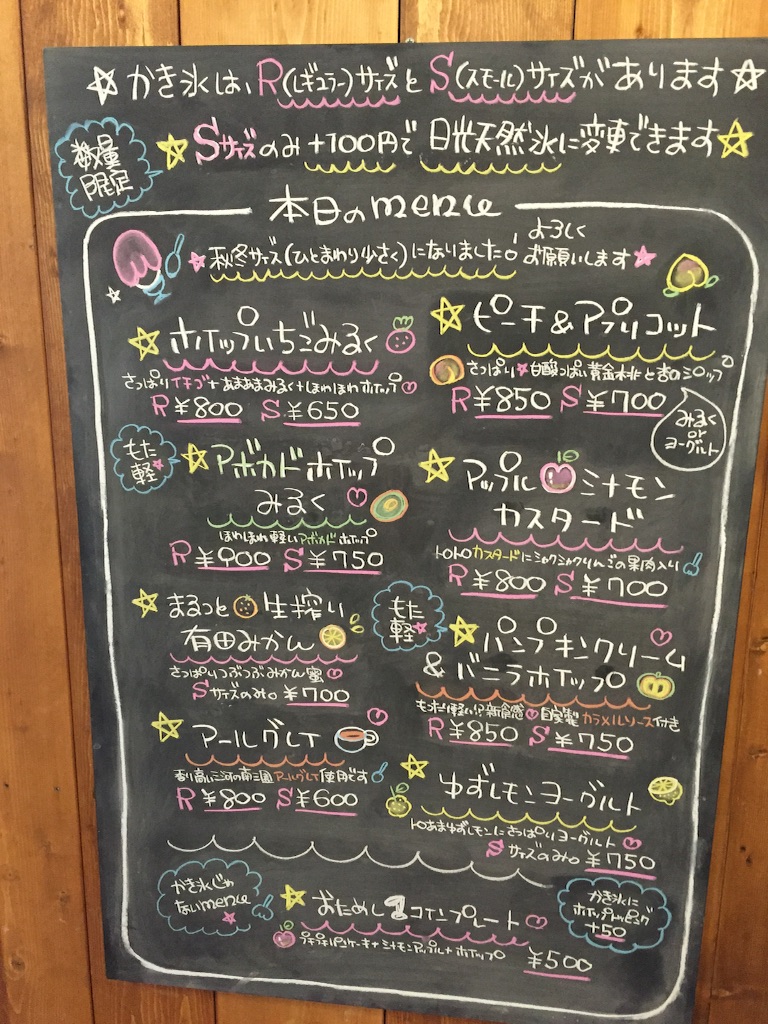 ☆かき氷は、R(レギュラー)サイズとS(スモール)サイズがあります☆
数量限定
☆Sサイズのみ+100円で日光天然氷に変更できます☆
本日のmenu
★秋冬サイズ(ひとまわり少さく)になりました!よろしくお願いします★
☆ホイップいちごみるく
さっぱりイチゴ+あまあまみるく+ほわほわホイップ♡
R¥800 S¥650
☆ピーチ&アプリコット
さっぱり★甘酸っぱい黄金桃と杏のシロップ
R¥850 S¥700
みるく
or
ヨーグルト
もた軽★
☆アボカドホイップ
みるく♡
ほわほわ軽いアボカドホイップ
R¥900 S¥750
☆アップルシナモン
カスタード
トロトロカスタードにシャクシャクりんごの果肉入り
R¥800 S¥700
☆まるっと生搾り
有田みかん
さっぱりつぶつぶみかん蜜♡
Sサイズのみ。¥700
もた軽★
☆パンプキンクリーム
&バニラホイップ
もっポリ軽い!?新食感♡自家製カラメルソース付き
R¥850 S¥750
☆アールグレイ
香り高い三河の南三園アールグレイ使用です
R¥800 S¥600
☆ゆずレモンヨーグルト
トロあまゆずレモンにさっぱりヨーグルト♡
Sサイズのみ。¥750
かき氷じゃ
ないmenu
☆おためし1コインプレート♡
プチプチパンケーキ+シナモンアップル+ホイップ
¥500
かき氷に
ホイップトッピング
+50